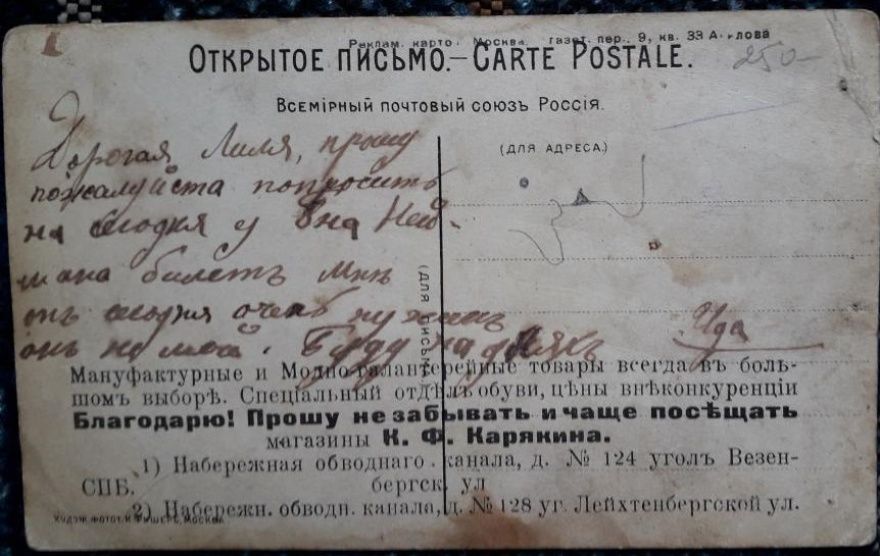 Реклам. карто. Москва. Газет. пер., 9, кв. 33
250-
ОТКРЫТОЕ ПИСЬМО.—CARTE POSTALE.
Всемірный почтовый союзъ Россія.
(ДЛЯ АДРЕСА.)
Дорогая Лиля, прошу
пожалуйста попросить
на сегодня у
билетъ мнѣ
сегодня очень нуженъ
онъ не мой. Буду на
Ида
(ДЛЯ ПИСЬМА
Мануфактурные и Модно-галантерейные товары всегда въ боль-
шомъ выборѣ. Спеціальный отдѣлъ обуви, цѣны внѣконкуренціи
Благодарю! Прошу не забывать и чаще посѣщать
магазины К. Ф. Карякина.
1) Набережная обводнаго канала, д. № 124 уголъ Везен-
СПБ. бергск. ул
2) Набережн. обводн. канала, д. № 128 уг. Лейхтенбергской ул.
ХУДОЖ. ФОТОТ. К. ФИШЕРЪ, МОСКВА